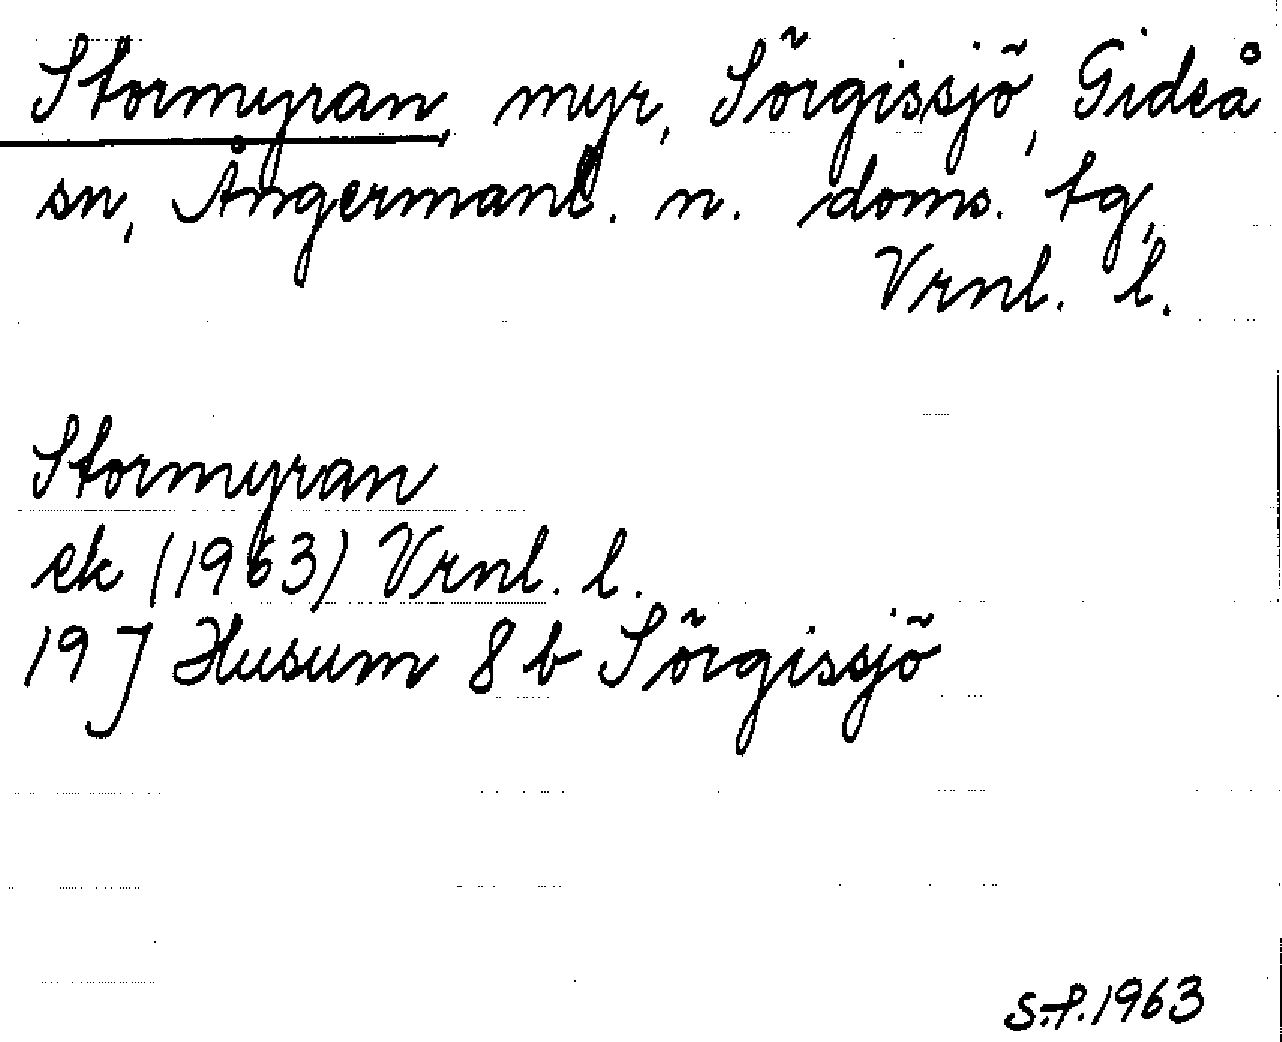 Stormyran, myr, Sörgissjö, Gideå
sn, Ångermanl. n. doms. tg,
Vrnl. l.
Stormyran
ek (1963) Vrnl. l.
19 J Husum 8 b Sörgissjö
S.-P. 1963